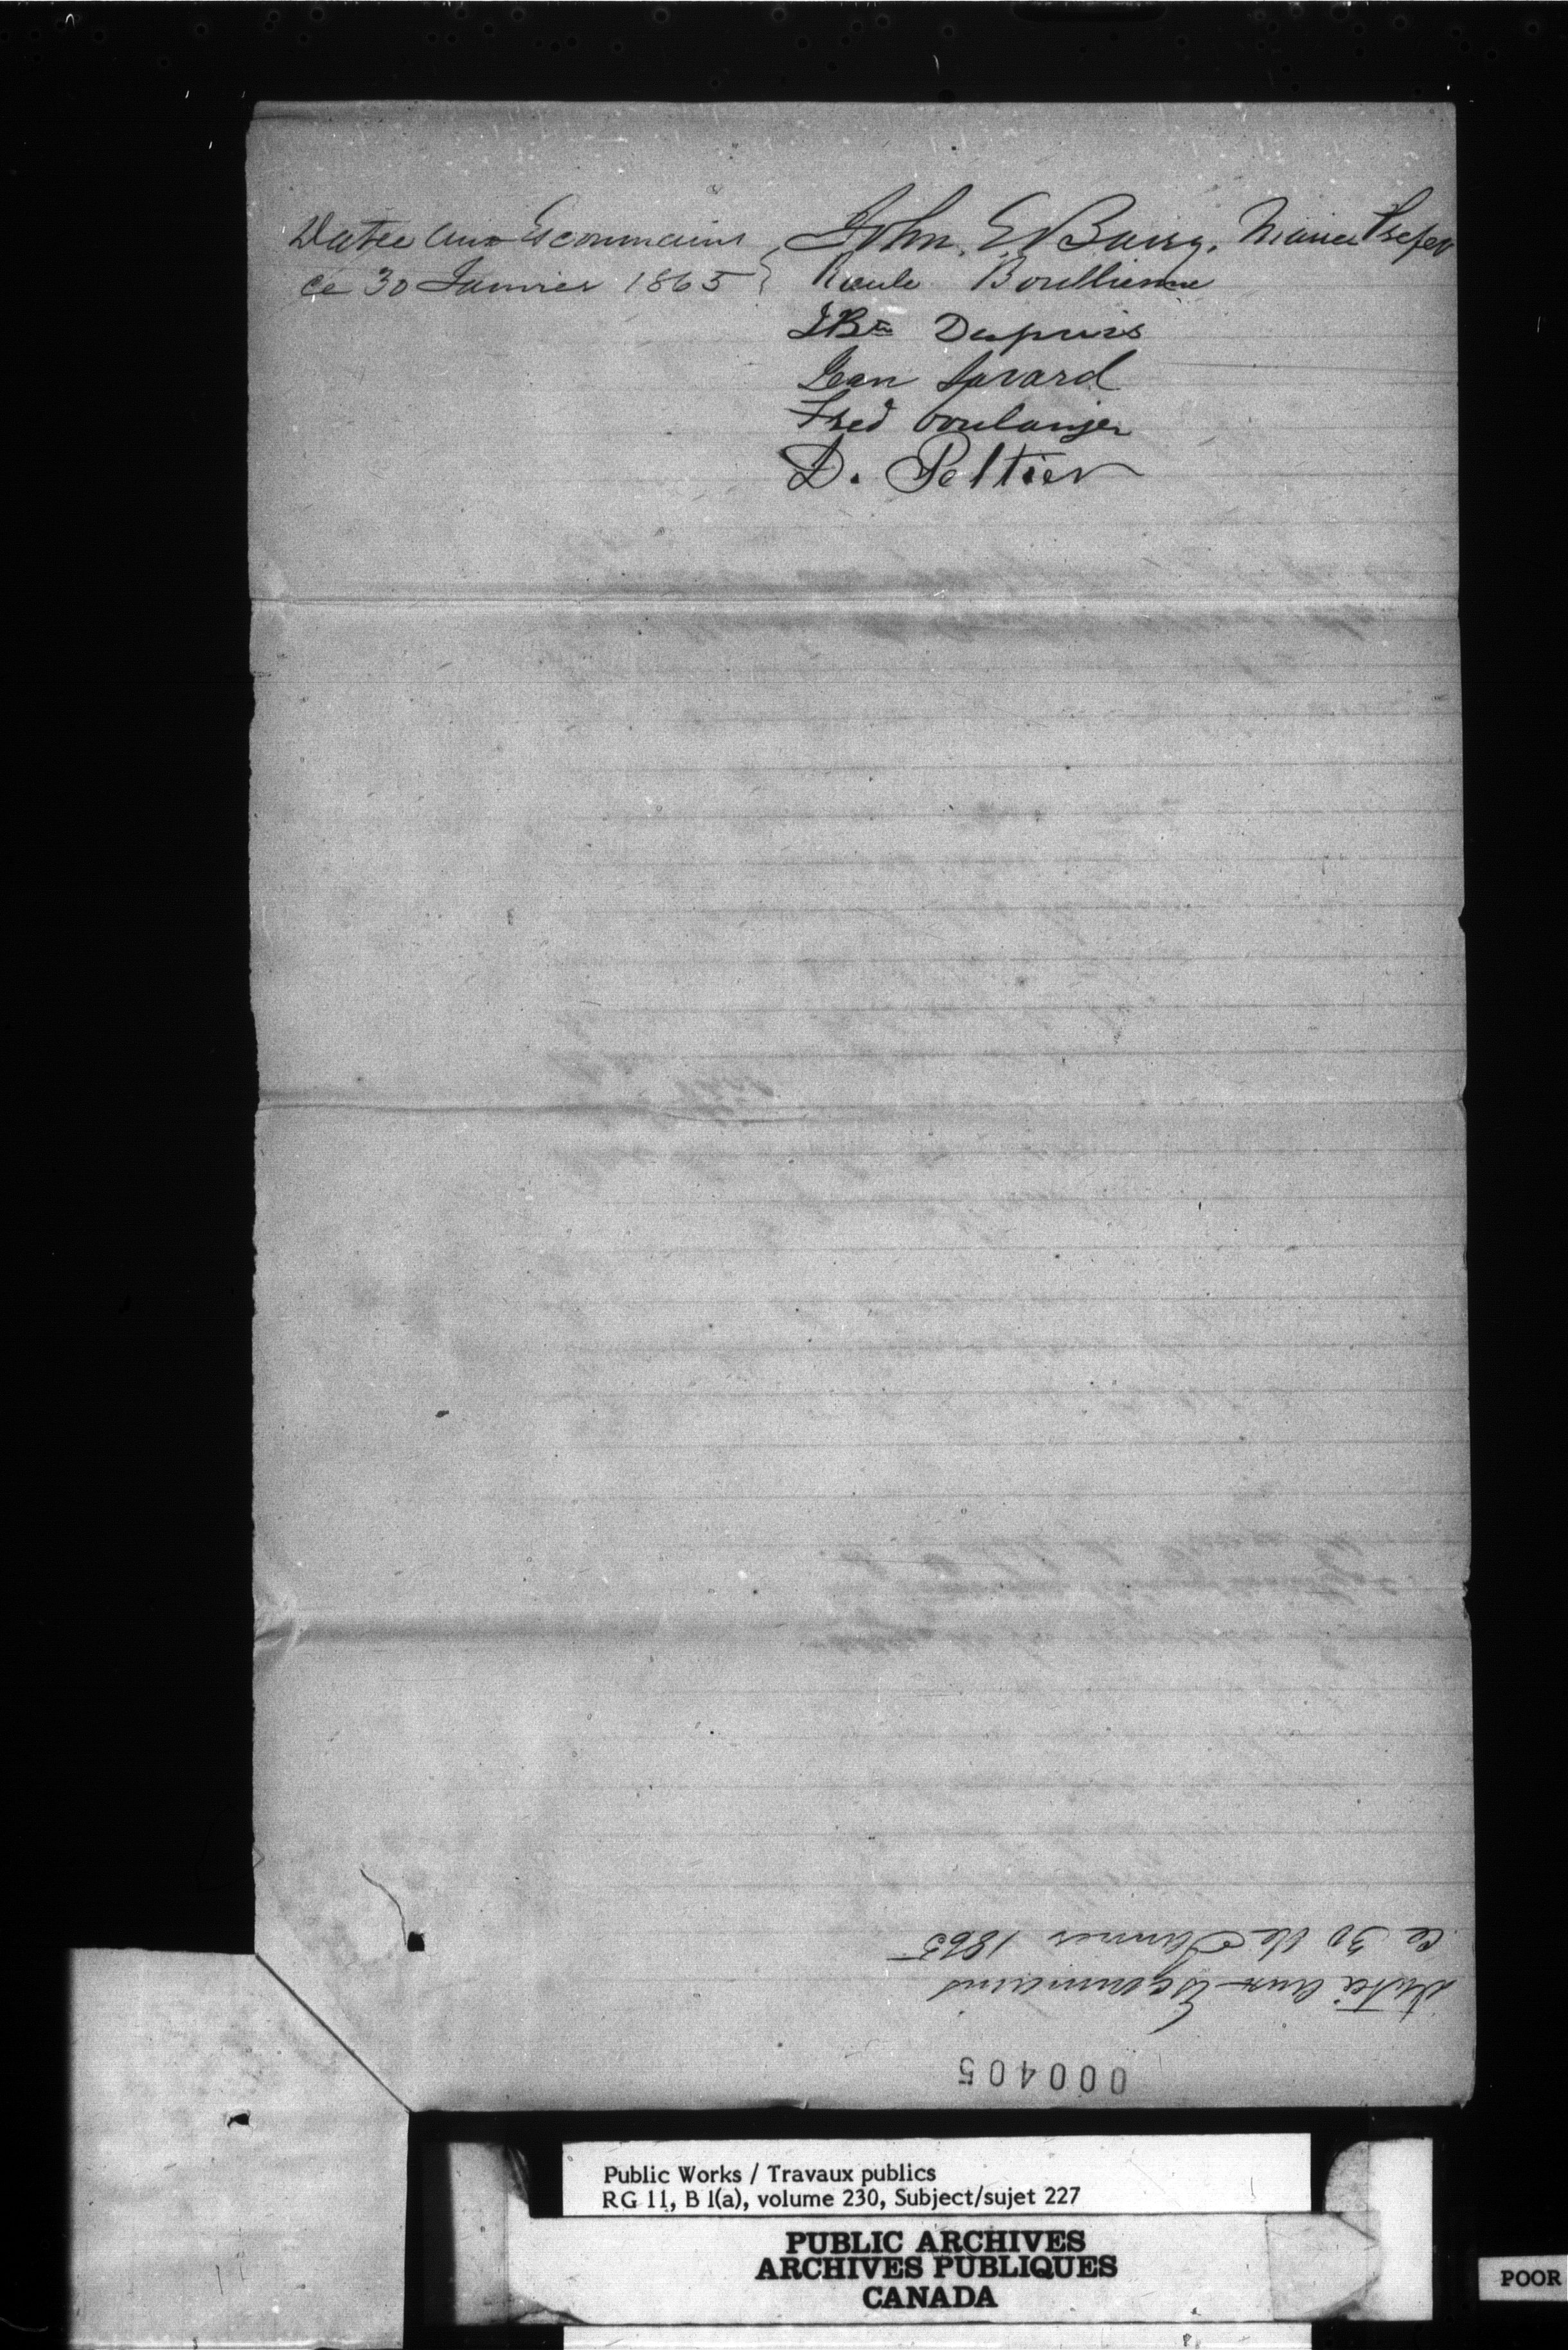 Datée aux Escoumains
ce 30 Janvier 1865
John, E Barry, Maire Prefet
Boullienne
JBte Dupuis
Jean Savard
Fred boulanger
D. Peltier
Datée aux Escoumains
Ce 30 de Janvier 1865
000405
Public Works / Travaux publics
RG 11, B 1(a), volume 230, Subject/sujet 227
PUBLIC ARCHIVES
ARCHIVES PUBLIQUES
CANADA
POOR